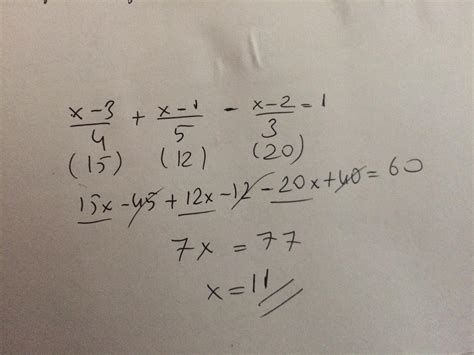 x-3/4 + x-1/5 - x-2/3 = 1
(15) (12) (20)
15x - 45 + 12x - 12 - 20x + 40 = 60
7x = 77
x = 11